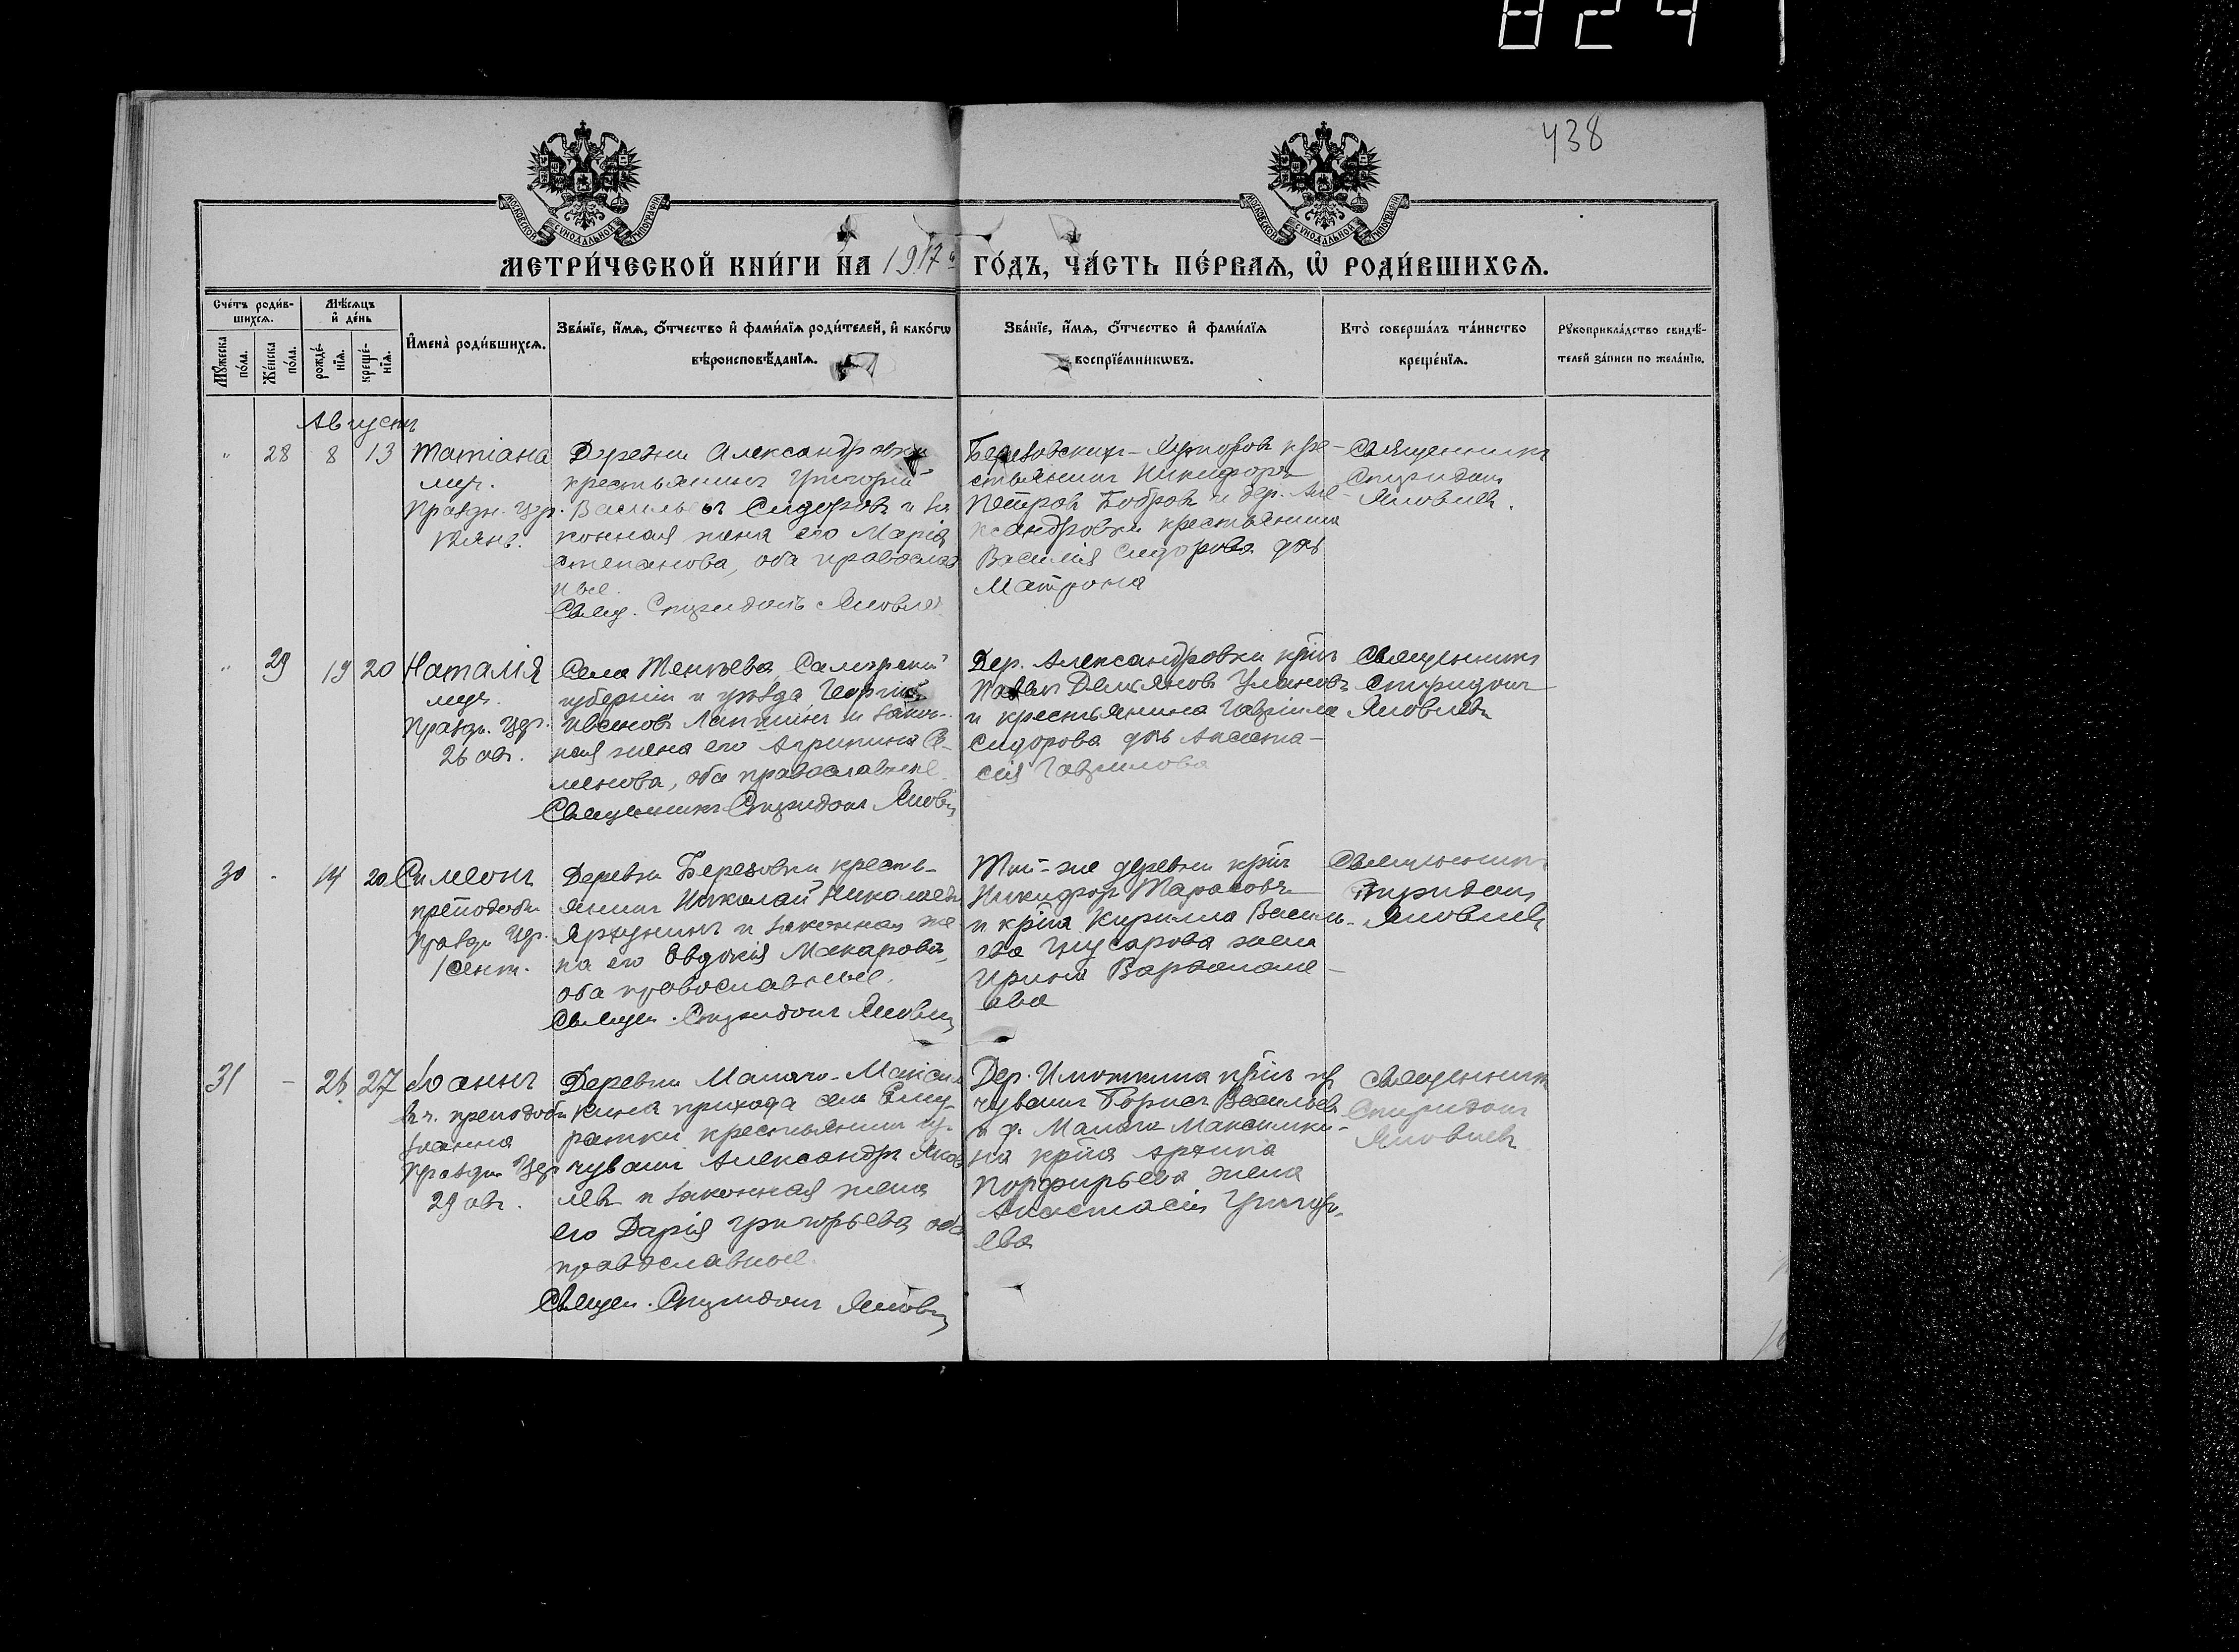 824
438
МОСКОВСКОЙ СѴНОДАЛЬНОЙ ТИПОГРАФІИ
МОСКОВСКОЙ СѴНОДАЛЬНОЙ ТИПОГРАФІИ
МЕТРИ́ЧЕСКОЙ КНИ́ГИ НА 1917 й ГО́ДЪ, ЧА́СТЬ ПЕ́РВАѦ, Ѽ РОДИ́ВШИХСѦ.
Сче́тъ роди́в-
шихсѧ.
Мꙋ́жеска по́ла.
Же́нска по́ла.
Мѣ́сѧцъ
и҆ де́нь
рожде́-
нїѧ.
креще́-
нїѧ.
И҆мена̀ роди́вшихсѧ.
Зва́нїе, и҆́мѧ, ѻ҆́тчество и҆ фами́лїѧ роди́телей, и҆ како́гѡ
вѣроисповѣ́данїѧ.
Зва́нїе, и҆́мѧ, ѻ҆́тчество и҆ фами́лїѧ
воспрїе́мникѡвъ.
Кто̀ соверша́лъ та́инство
креще́нїѧ.
Рꙋкоприкла́дство свидѣ́-
телей за́писи по жела́нїю.
Августъ
" 28 8 13
Татіана
муч.
Праздн. Цер.
Деревни Александровки
крестьянинъ Григорій
Васильевъ Сидоровъ и за
конная жена его Марія
Степанова, оба православ
ные.
Свящ. Спиридонъ Яковлев
Березовскихъ-Хуторовъ кре-
стьянинъ Никифоръ
Петровъ Бобровъ и дер. Але-
ксандровки крестьянина
Василія Сидорова дчь
Матрона
Священникъ
Спиридонъ
Яковлевъ.
" 29 19 20
Наталія
муч.
Праздн. Цер.
26 авг.
Села Самарской
губерніи и уѣзда Георгій
Ивановъ Лапшинъ и закон-
ная жена его Агрипина Се-
менова, оба православные.
Священникъ Спиридонъ Яковл
Дер. Александровки кр-нъ
Павелъ Демьяновъ Улановъ
и крестьянина Гавріила
Сидорова дчь Анаста-
сія Гаврилова
Священникъ
Спиридонъ
Яковлевъ
30 - 14 20
Симеонъ
преподобн
Праздн Цер.
1 сент.
Деревни Березовки кресть-
янинъ Николай Николаевъ
и законная же
на его Евдокія Макарова,
оба православные.
Священ. Спиридонъ Яковлев
Той-же деревни кр-нъ
Никифоръ Тарасовъ
и кр-на Кирилла Василь-
ева Гусарова жена
Ирина Варфоломе-
ева
Священникъ
Спиридонъ
Яковлевъ
31 - 26 27
Іоаннъ
преподобн
Іоанна
Праздн Цер
29 авг.
Деревни Малаго-Максим
кина прихода села
крестьянинъ изъ
чувашъ Александръ Яков
левъ и законная жена
его Дарія Григорьева, оба
православные.
Священ. Спиридонъ Яковлев
Дер. кр-нъ изъ
чувашъ Борисъ Васильевъ
и д. Малаго Максимки-
на кр-на
Порфирьева жена
Анастасія Григорь-
ева
Священникъ
Спиридонъ
Яковлевъ